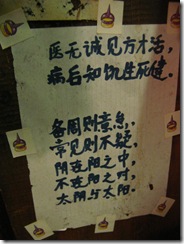 医无诚见方才活，
病后知仇生死健。
备周则意怠，
常见则不疑，
阴在阳之中，
不在阳之对，
太阴与太阳。